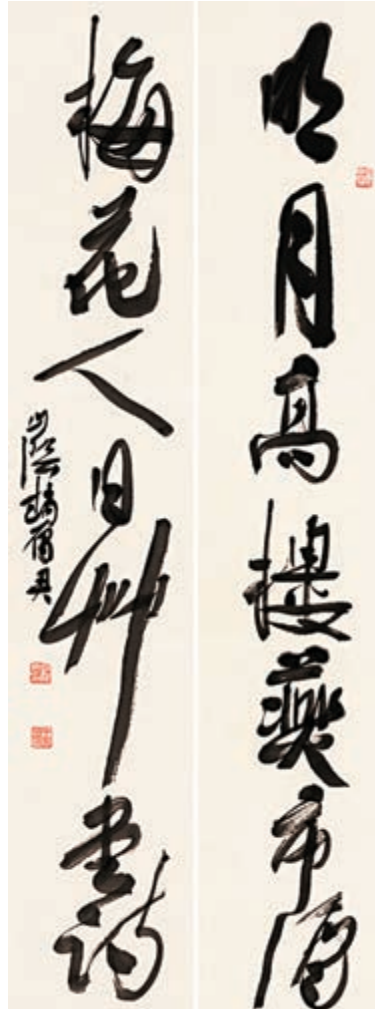 明月高樓燕市酒
梅花人日艸堂詩
山陰